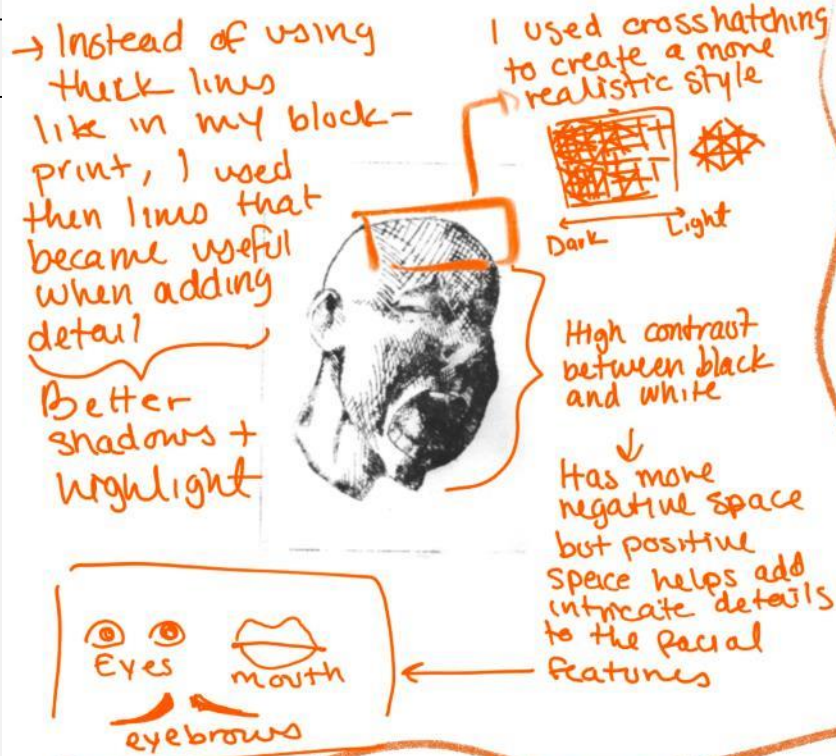 → Instead of using
thick lines
like in my block-
print, I used
then lines that
became useful
when adding
detail
Better
shadows +
highlight
I used crosshatching
to create a more
realistic style
Dark
Light
High contrast
between black
and white
Has more
negative space
but positive
space helps add
intricate details
to the facial
features
Eyes
mouth
eyebrows